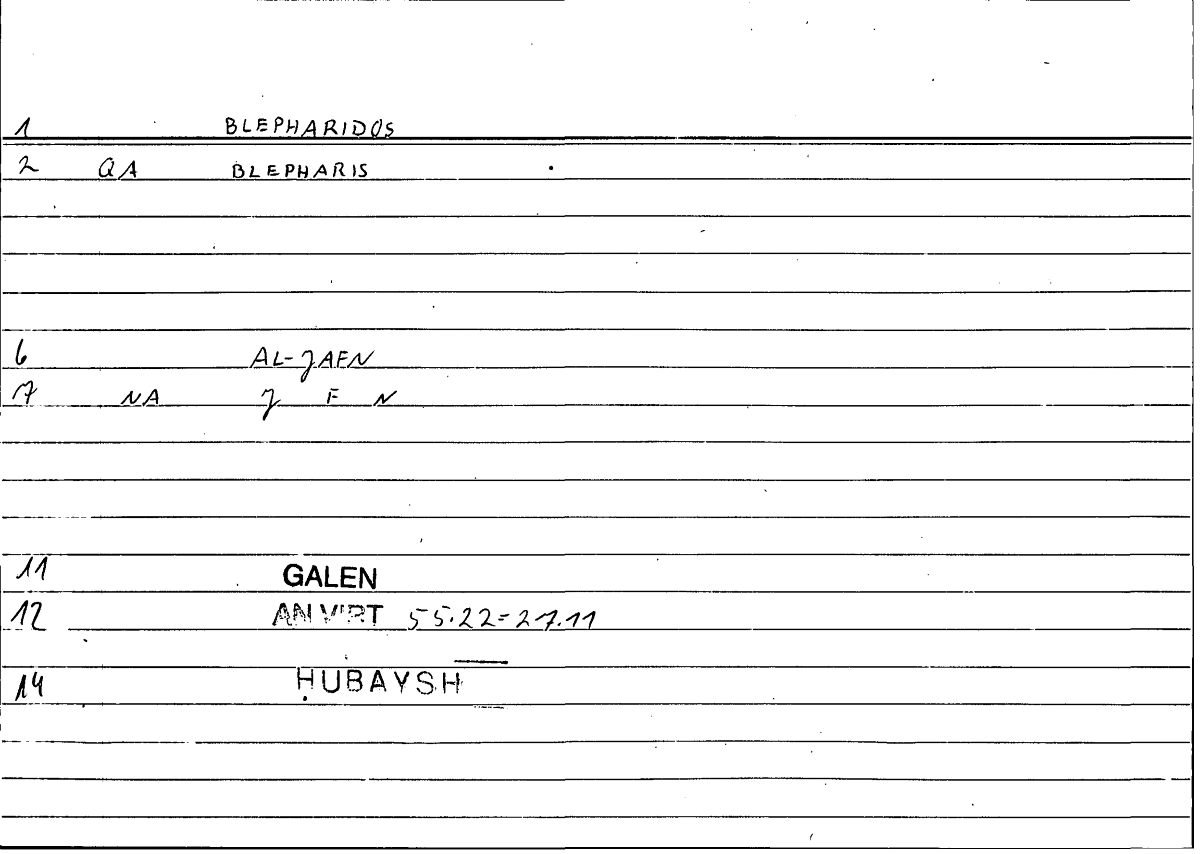 1 BLEPHARIDOS
2 QA BLEPHARIS
6 AL-JAFN
7 NA J F N
11 GALEN
12 AN VIRT 55.22=27.11
14 ḤUBAYSH